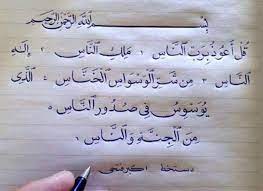 بِسْمِ اللَّهِ الرَّحْمَنِ الرَّحِيمِ
قُلْ أَعُوذُ بِرَبِّ النَّاسِ ١ مَلِكِ النَّاسِ ٢ إِلَهِ
النَّاسِ ٣ مِنْ شَرِّ الْوَسْوَاسِ الْخَنَّاسِ ٤ الَّذِي
يُوَسْوِسُ فِي صُدُورِ النَّاسِ ٥
مِنَ الْجِنَّةِ وَالنَّاسِ ٦
دستخط